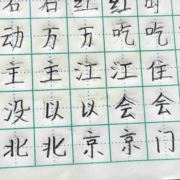 石 石 红 红 时
动 万 万 吃 吃
主 主 江 江 住
没 以 以 会 会
北 北 京 京 门